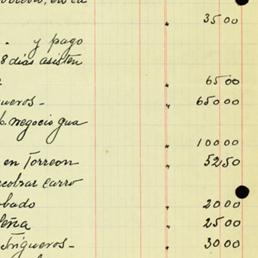 " 35 00
- y pago
8 dias asisten
" 65 00
gueros- " 650 00
b. negocio gua
" 100 00
en Torreon " 52 50
recobrar carro
bado " 20 00
leña " 25 00
Trigueros- " 30 00